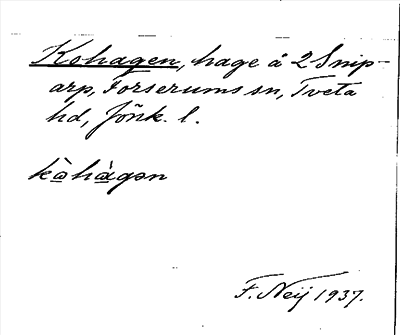 Kohagen, hage å 2 Snip-
arp, Forserums sn, Tveta
hd, Jönk. l.
kòhàgən
F. Neij 1937.